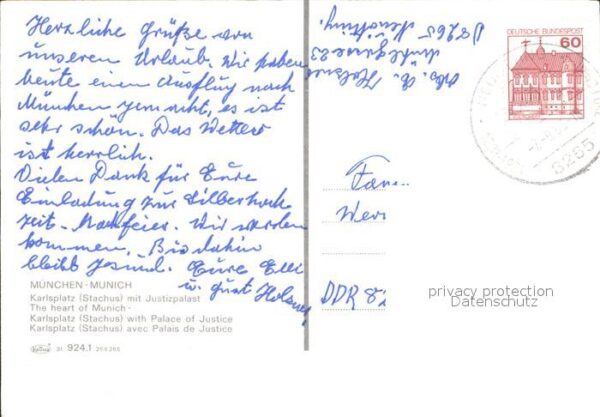 Herzliche Grüße von
unserem Urlaub. Wir haben
heute einen Ausflug nach
München gemacht, es ist
sehr schön. Das Wetter
ist herrlich.
Vielen Dank für Eure
Einladung zur Silberhoch
zeit-Nachfeier. Wir werden
kommen. Bis dahin
bleibt gesund. Eure Elli
u. Gust Holsner
MÜNCHEN · MUNICH
Karlsplatz (Stachus) mit Justizpalast
The heart of Munich -
Karlsplatz (Stachus) with Palace of Justice
Karlsplatz (Stachus) avec Palais de Justice
31 924.1 254 265
Abs. Holsner
23
D 8265 Neuötting
DEUTSCHE BUNDESPOST
60
8265
Fam.
Wer
DDR 82
privacy protection
Datenschutz